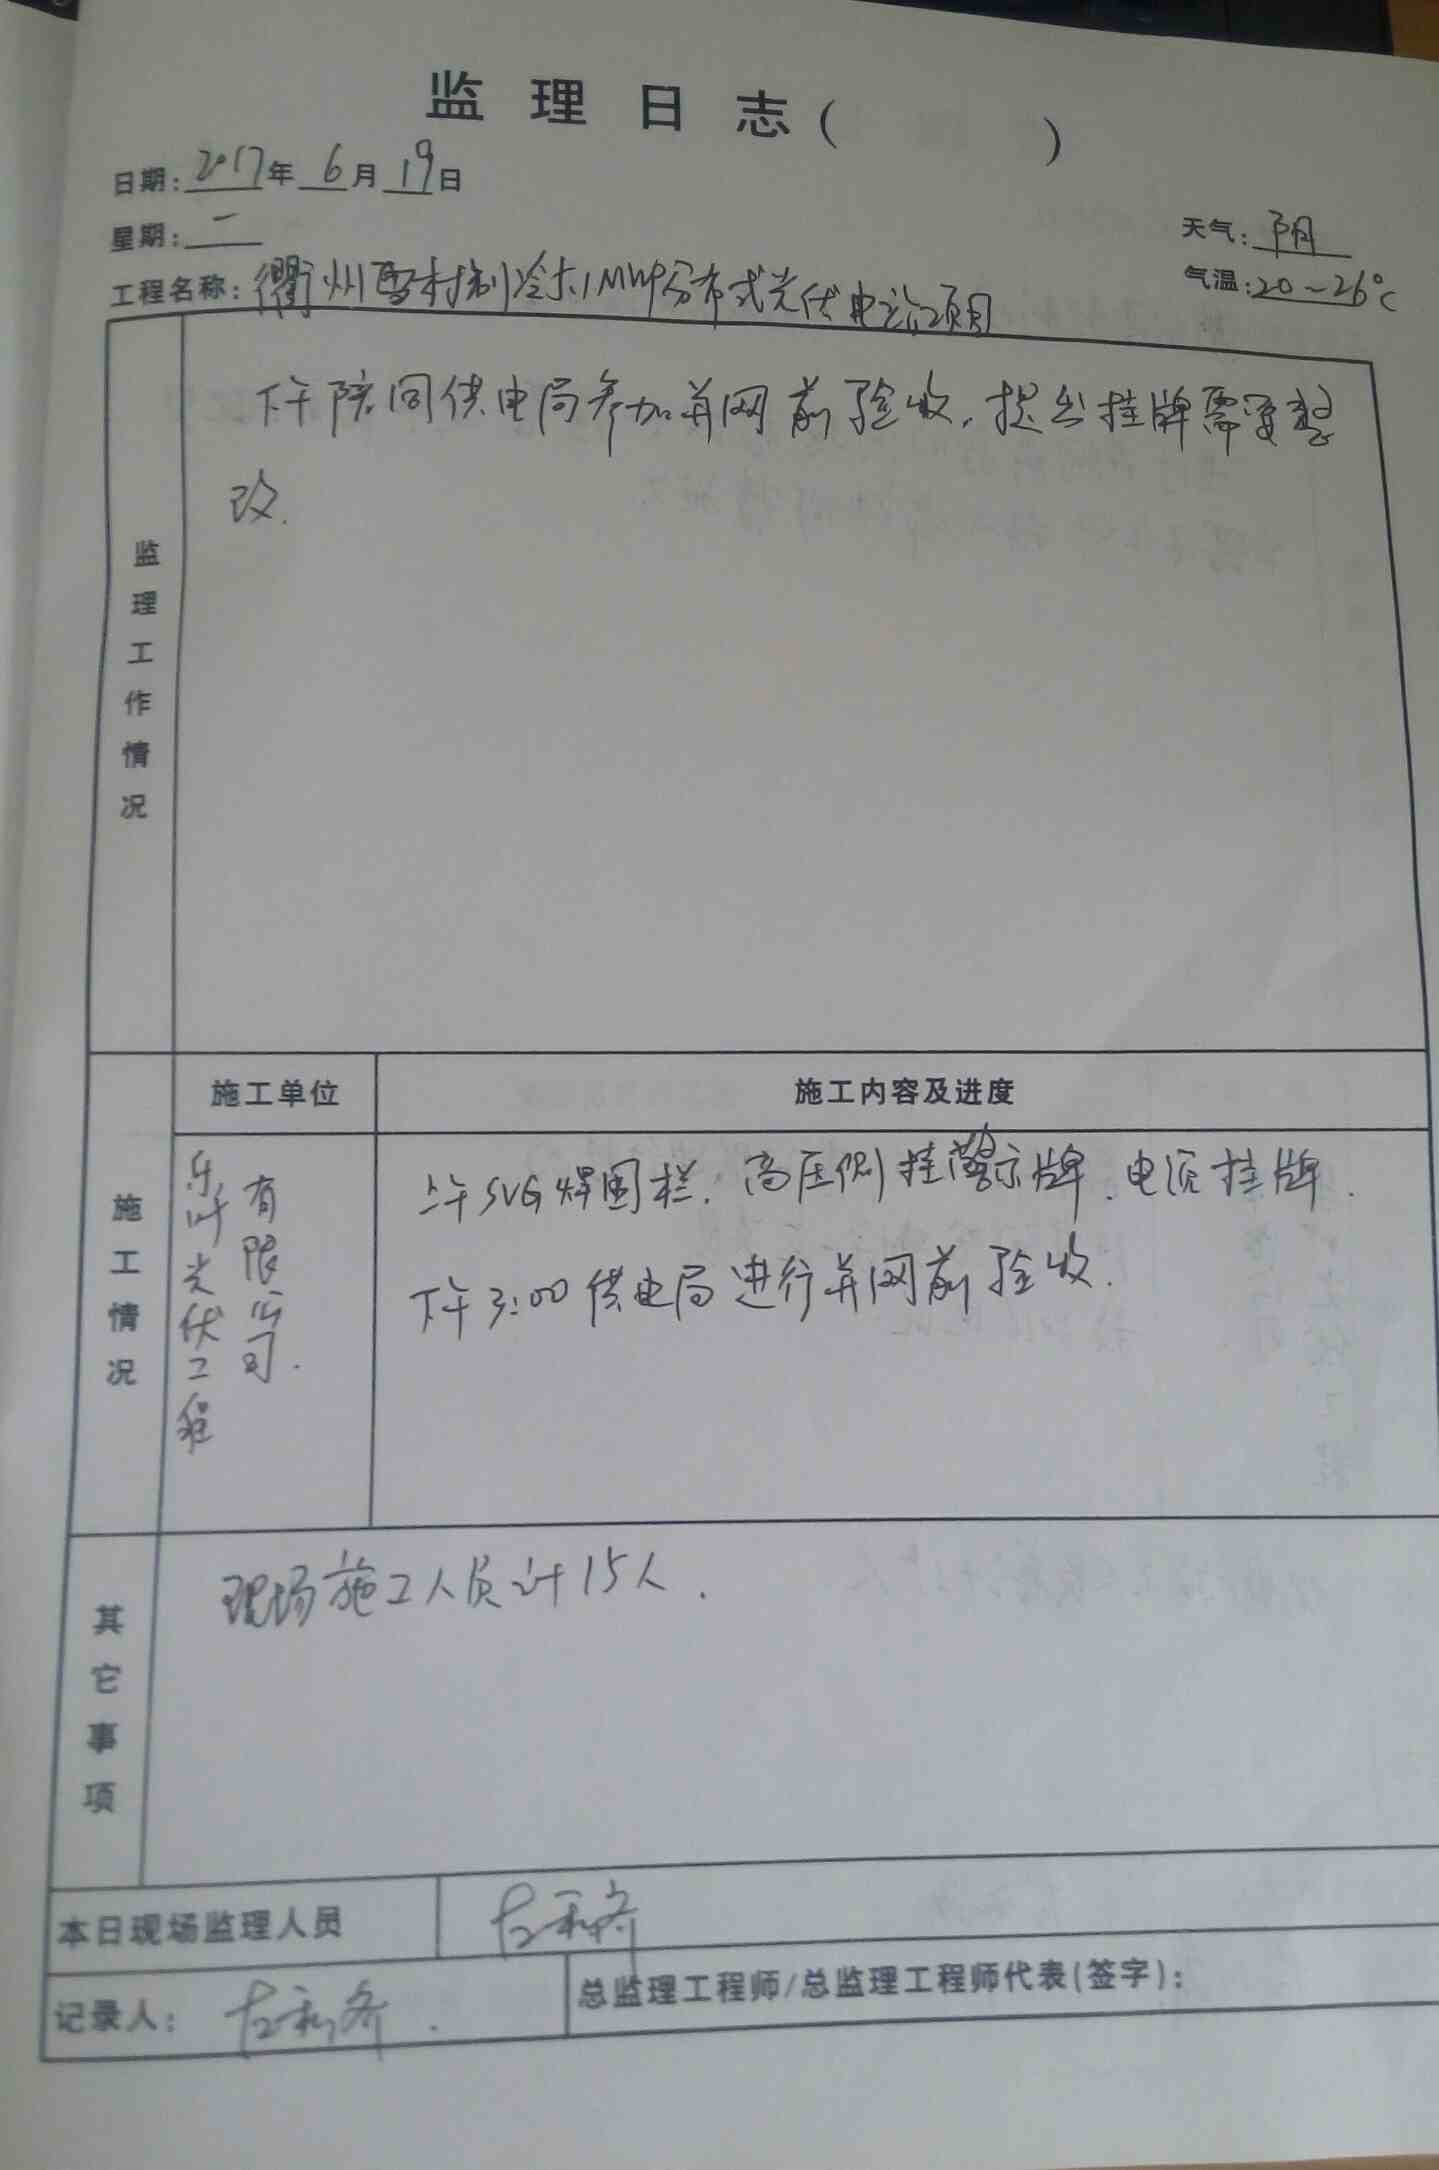 监理日志(        )
日期:2017年6月19日
星期:一
天气:阴
工程名称:衢州雪村制冷 1MWP分布式光伏电站项目
气温:20~26℃
监理工作情况
下午陪同供电局参加并网前验收,提出挂牌需要整
改.
施工情况
施工单位
施工内容及进度
乐叶光伏工程
有限公司.
上午SVG焊围栏.高压侧挂警示牌.电缆挂牌.
下午3:00供电局进行并网前验收.
其它事项
现场施工人员计15人.
本日现场监理人员
记录人:
总监理工程师/总监理工程师代表(签字):